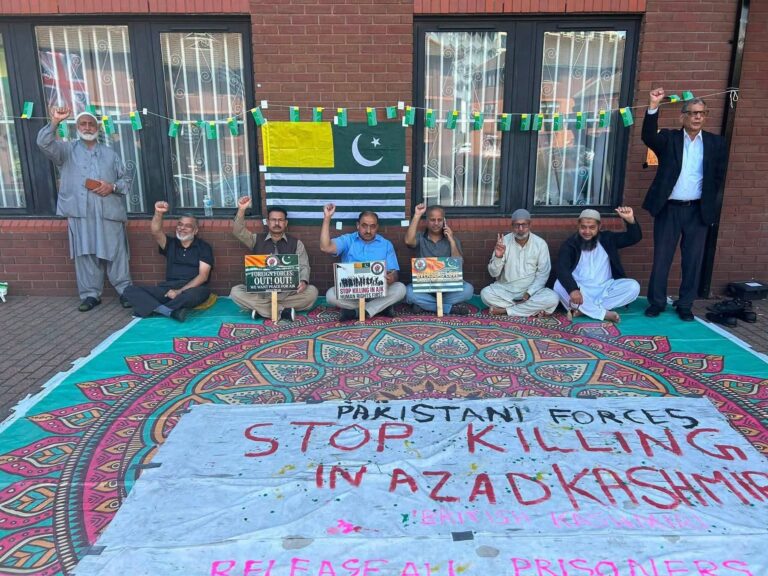 FOREIGN FORCES
OUT! OUT!
WE WANT PEACE FOR AJK
STOP KILLING IN AJK
PAKISTANI FORCES
STOP KILLING
IN AZAD KASHMIR
BRITISH KASHMIRI
RELEASE ALL PRISONERS